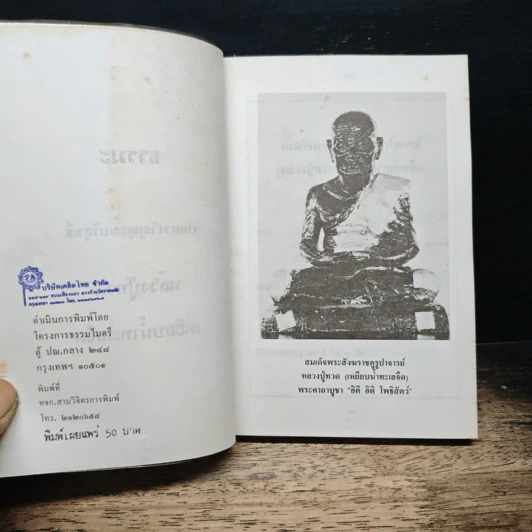 บริษัทเคล็ดไทย จำกัด
ดำเนินการพิมพ์โดย
โครงการธรรมไมตรี
ตู้ ปณ.กลาง ๒๔๘
กรุงเทพฯ ๑๐๕๐๑
พิมพ์ที่
หจก.สามวิจิตรการพิมพ์
โทร. ๒๑๒๐๖๕๔
พิมพ์เผยแพร่ 50 บาท
สมเด็จพระสังฆราชคูรูปาจารย์
หลวงปู่ทวด (เหยียบน้ำทะเลจืด)
พระคาถาบูชา "อิติ อิติ โพธิสัตว์"